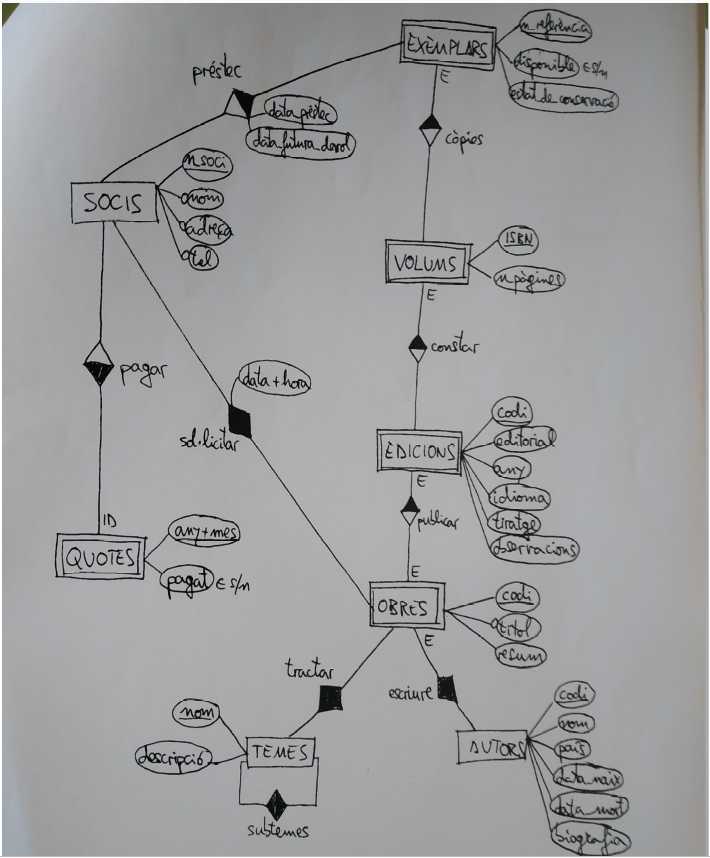 EXEMPLARS
n_referència
disponible ∈ s/n
estat_de_conservació
E
préstec
data_préstec
data_futura_devol
còpies
SOCIS
n_soci
nom
adreça
tel
VOLUMS
ISBN
n_pàgines
E
constar
pagar
data + hora
sol·licitar
EDICIONS
codi
editorial
any
idioma
tiratge
observacions
E
publicar
ID
QUOTES
any+mes
pagat ∈ s/n
E
OBRES
codi
títol
resum
E
tractar
escriure
TEMES
nom
descripció
subtemes
AUTORS
codi
nom
país
data_naix
data_mort
biografia